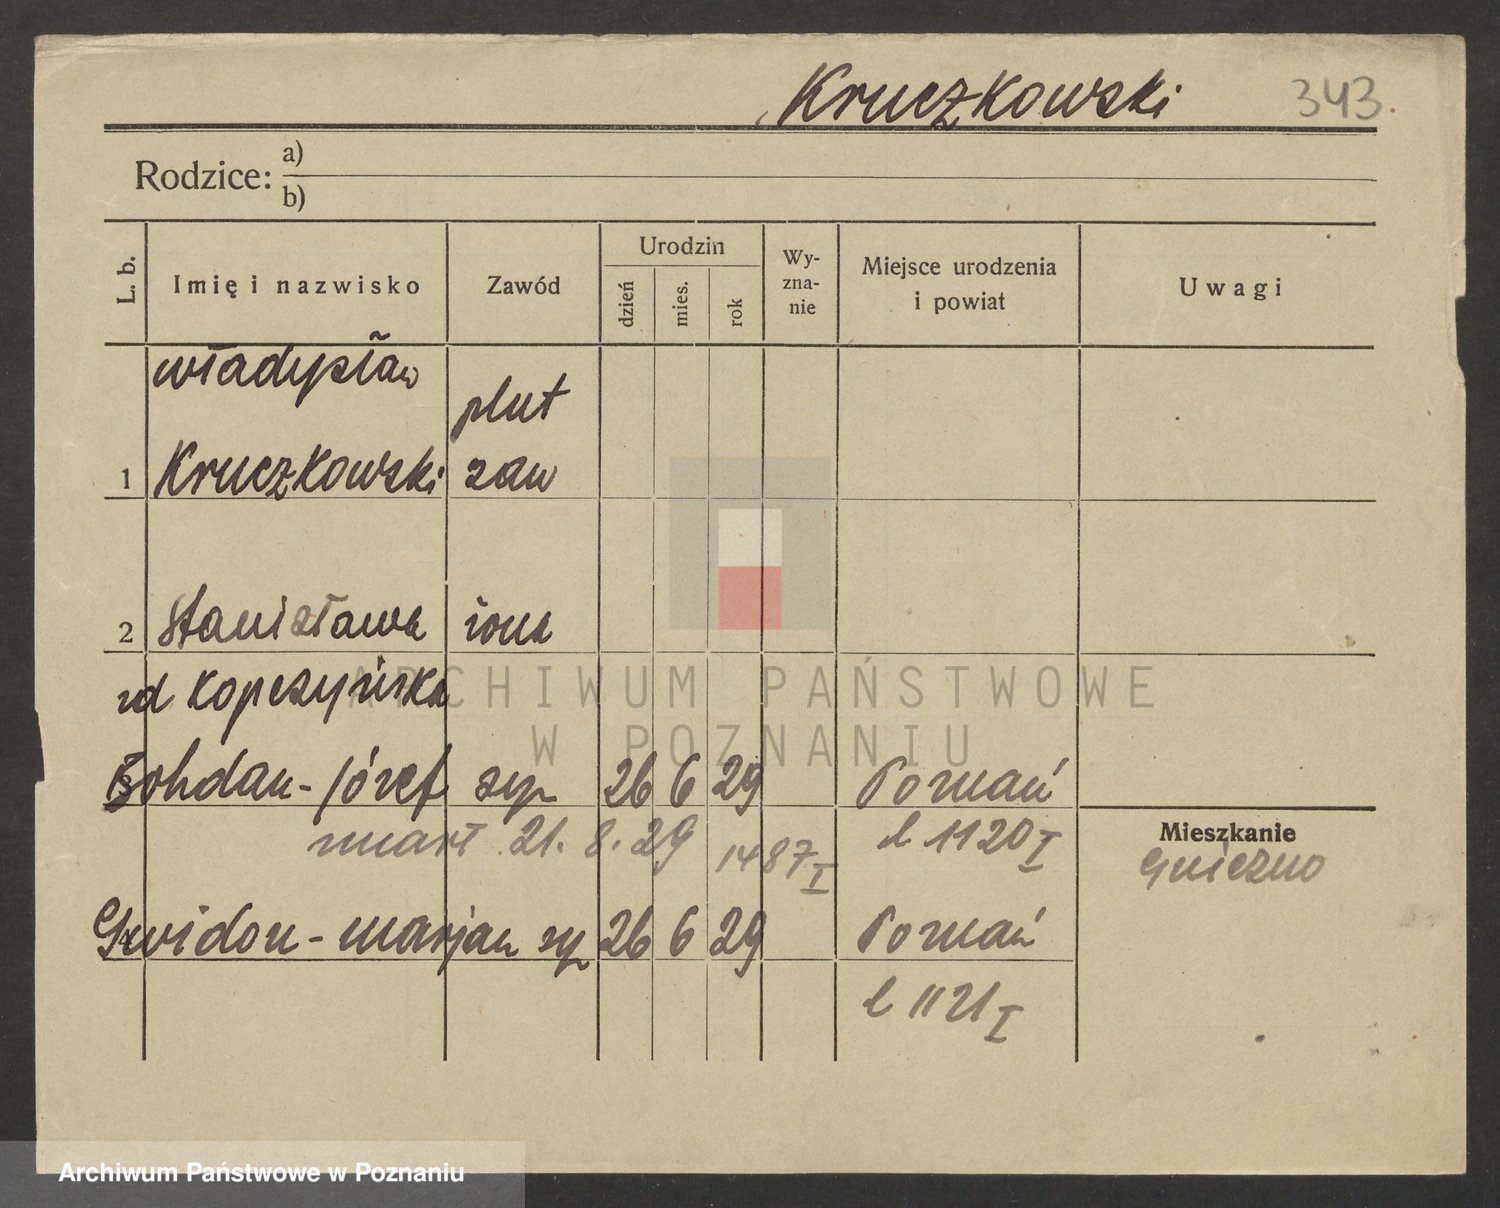 Kruczkowski 343.
Rodzice: a)
b)
L. b. Imię i nazwisko Zawód Urodzin dzień mies. rok Wy-zna-nie Miejsce urodzenia i powiat Uwagi
Władysław plut
1 Kruczkowski zaw
2 Stanisława żona
zd Kopczyńska
ARCHIWUM PAŃSTWOWE
W POZNANIU
3 Bohdan-Józef syn 26 6 29 Poznań
zmarł 21. 8. 29 1487 I l 1120 I
Mieszkanie
Gniezno
4 Gwidon-Marjan syn 26 6 29 Poznań
l 1121 I
Archiwum Państwowe w Poznaniu